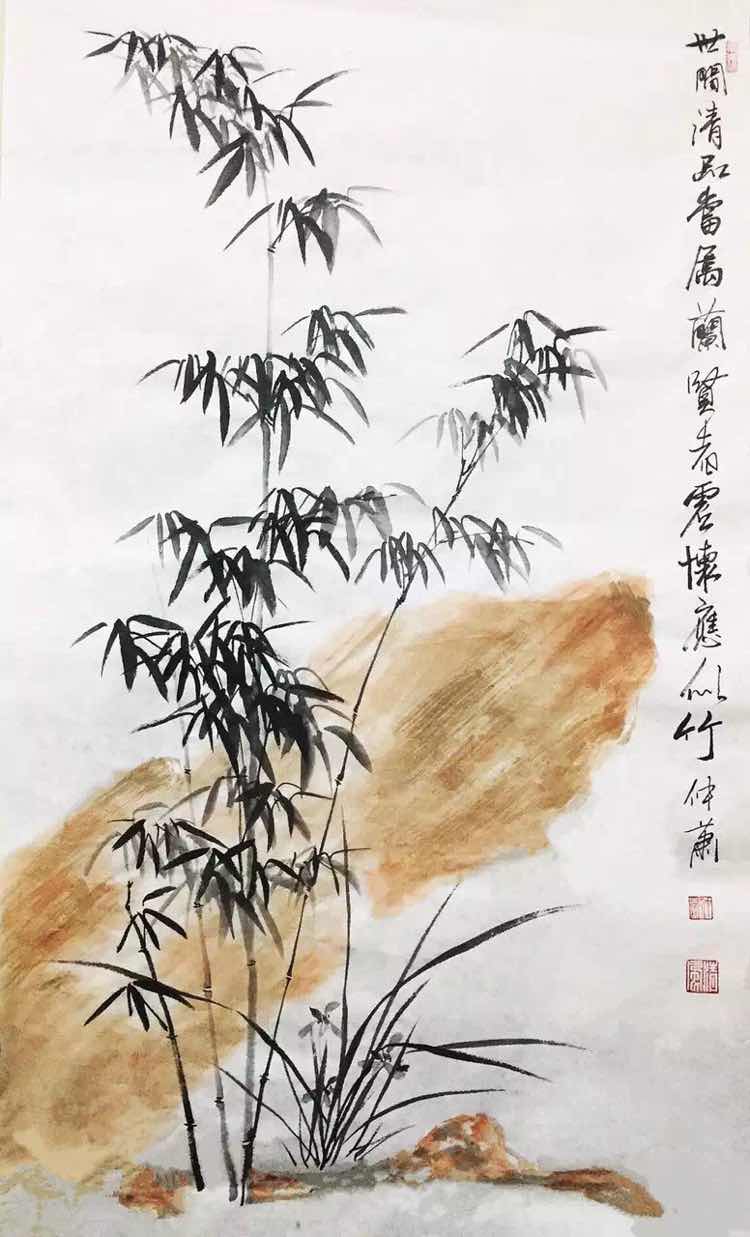 世間清品當屬蘭賢者虛懷應似竹 仲蕭